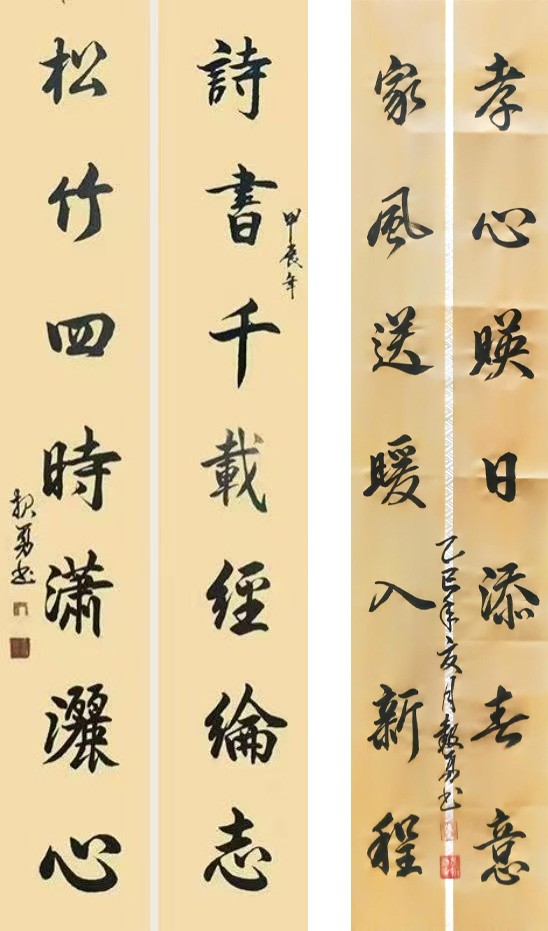 詩書千載經綸志
甲辰年
松竹四時瀟灑心
勇书
孝心暎日添春意
家風送暖入新程
乙巳年亥月勇书